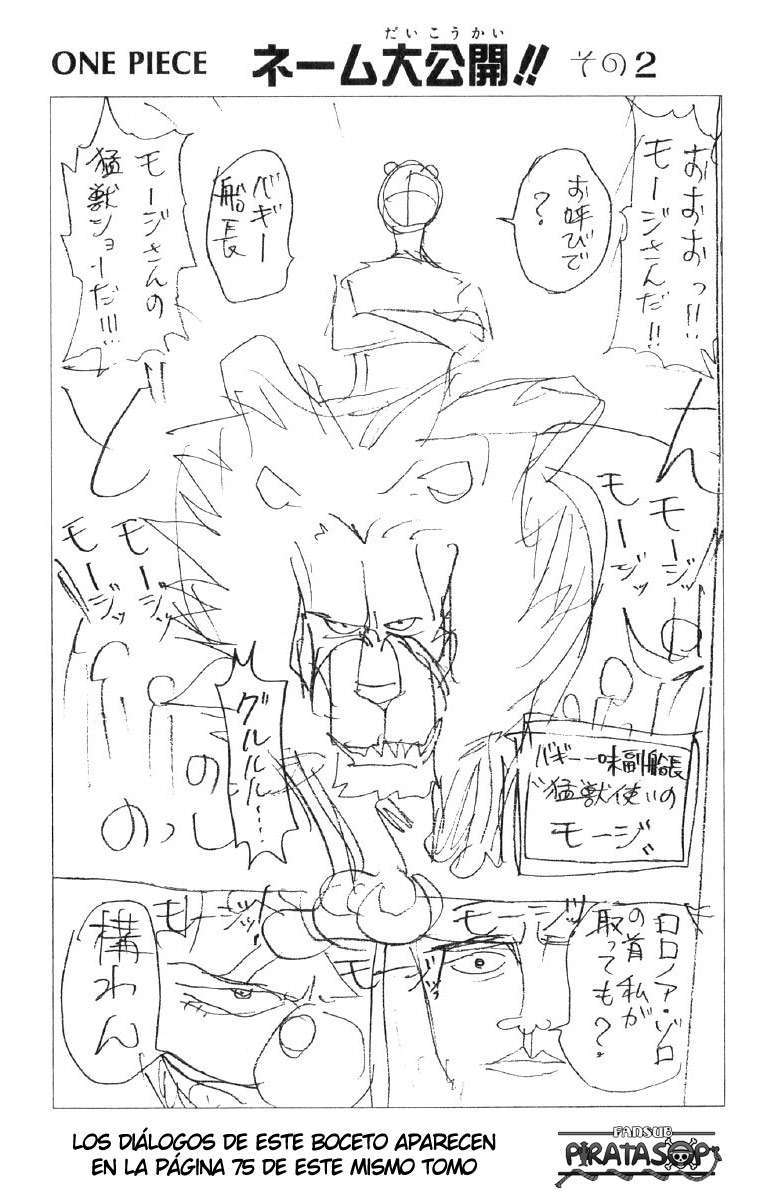 だいこうかい
ONE PIECE ネーム大公開!! その2
おおおっ!!
モージさんだ!!
お呼びで
?
バギー
船長
モージさんの
猛獣ショーだ!!!
モージッ
モージッ
モージッ
モージッ
グルルル…
のっし
の
バギー一味副船長
猛獣使いの
モージ
ロロノア・ゾロ
の首 私が
取っても?
モージッ
モージッ
モージッ!
構わん
LOS DIÁLOGOS DE ESTE BOCETO APARECEN
EN LA PÁGINA 75 DE ESTE MISMO TOMO
FANSUB
PIRATASOP